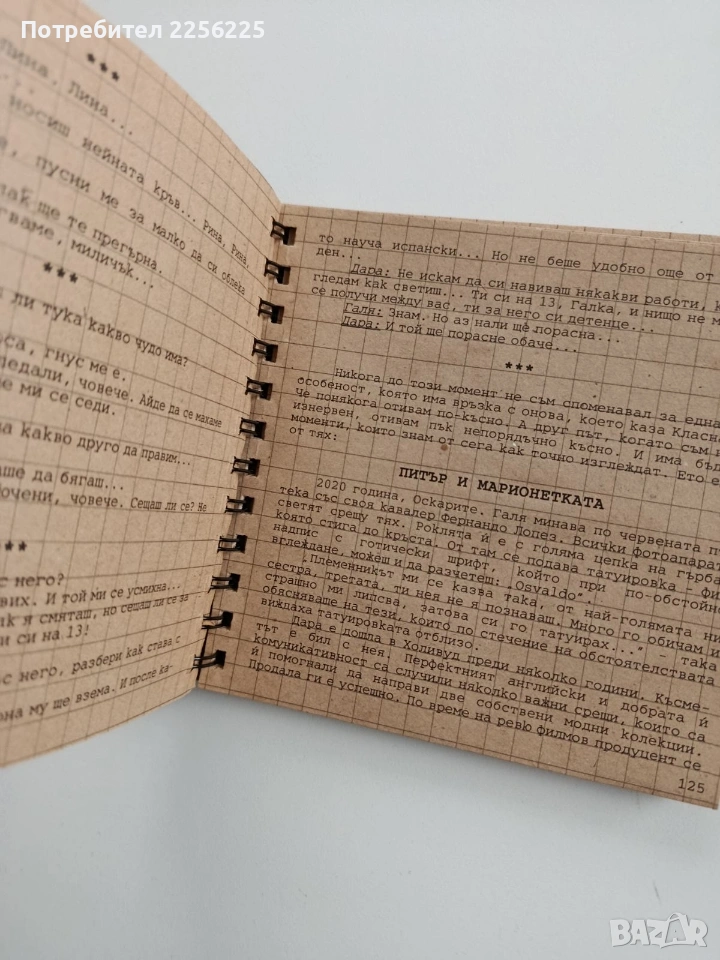 Потребител 2256225
***
Лина. Лина...
носиш нейната кръв... Рина, Рина,
пусни ме за малко да си облека
ще те прегърна.
миличък...
***
ли тука какво чудо има?
гнус ме е.
човече. Айде да се махаме
ми се седи.
какво друго да правим...
да бягаш...
човече. Сещаш ли се? Не
***
с него?
И той ми се усмихна...
я смяташ, но сещаш ли се за
си на 13!
с него, разбери как става с
му ще взема. И после ка-
то науча испански... Но не беше удобно още от
ден...
Дара: Не искам да си навиваш някакви работи,
гледам как светиш... Ти си на 13, Галка, и нищо не м
се получи между вас, ти за него си детенце...
Галя: Знам. Но аз нали ще порасна...
Дара: И той ще порасне обаче...
***
Никога до този момент не съм споменавал за една
особеност, която има връзка с онова, което каза Класн
Че понякога отивам по-късно. А друг път, когато съм н
изнервен, отивам пък непорядъчно късно. И има бъд
моменти, които знам от сега как точно изглеждат. Ето е
от тях:
ПИТЪР И МАРИОНЕТКАТА
2020 година, Оскарите. Галя минава по червената п
тека със своя кавалер Фернандо Лопез. Всички фотоапарат
светят срещу тях. Роклята ѝ е с голяма цепка на гърба
която стига до кръста. От там се подава татуировка - фи
надпис с готически шрифт, който при по-обстойн
вглеждане, можеш и да разчетеш: „Osvaldo".
„Племенникът ми се казва така, от най-голямата ни
сестра, третата, ти нея не я познаваш. Много го обичам и
страшно ми липсва, затова си го татуирах..." - така
обясняваше на тези, които по стечение на обстоятелствата
виждаха татуировката отблизо.
Дара е дошла в Холивуд преди няколко години. Късме-
тът е бил с нея. Перфектният английски и добрата ѝ
комуникативност са случили няколко важни срещи, които са
ѝ помогнали да направи две собствени модни колекции.
Продала ги е успешно. По време на ревю филмов продуцент се
125
BAZAR